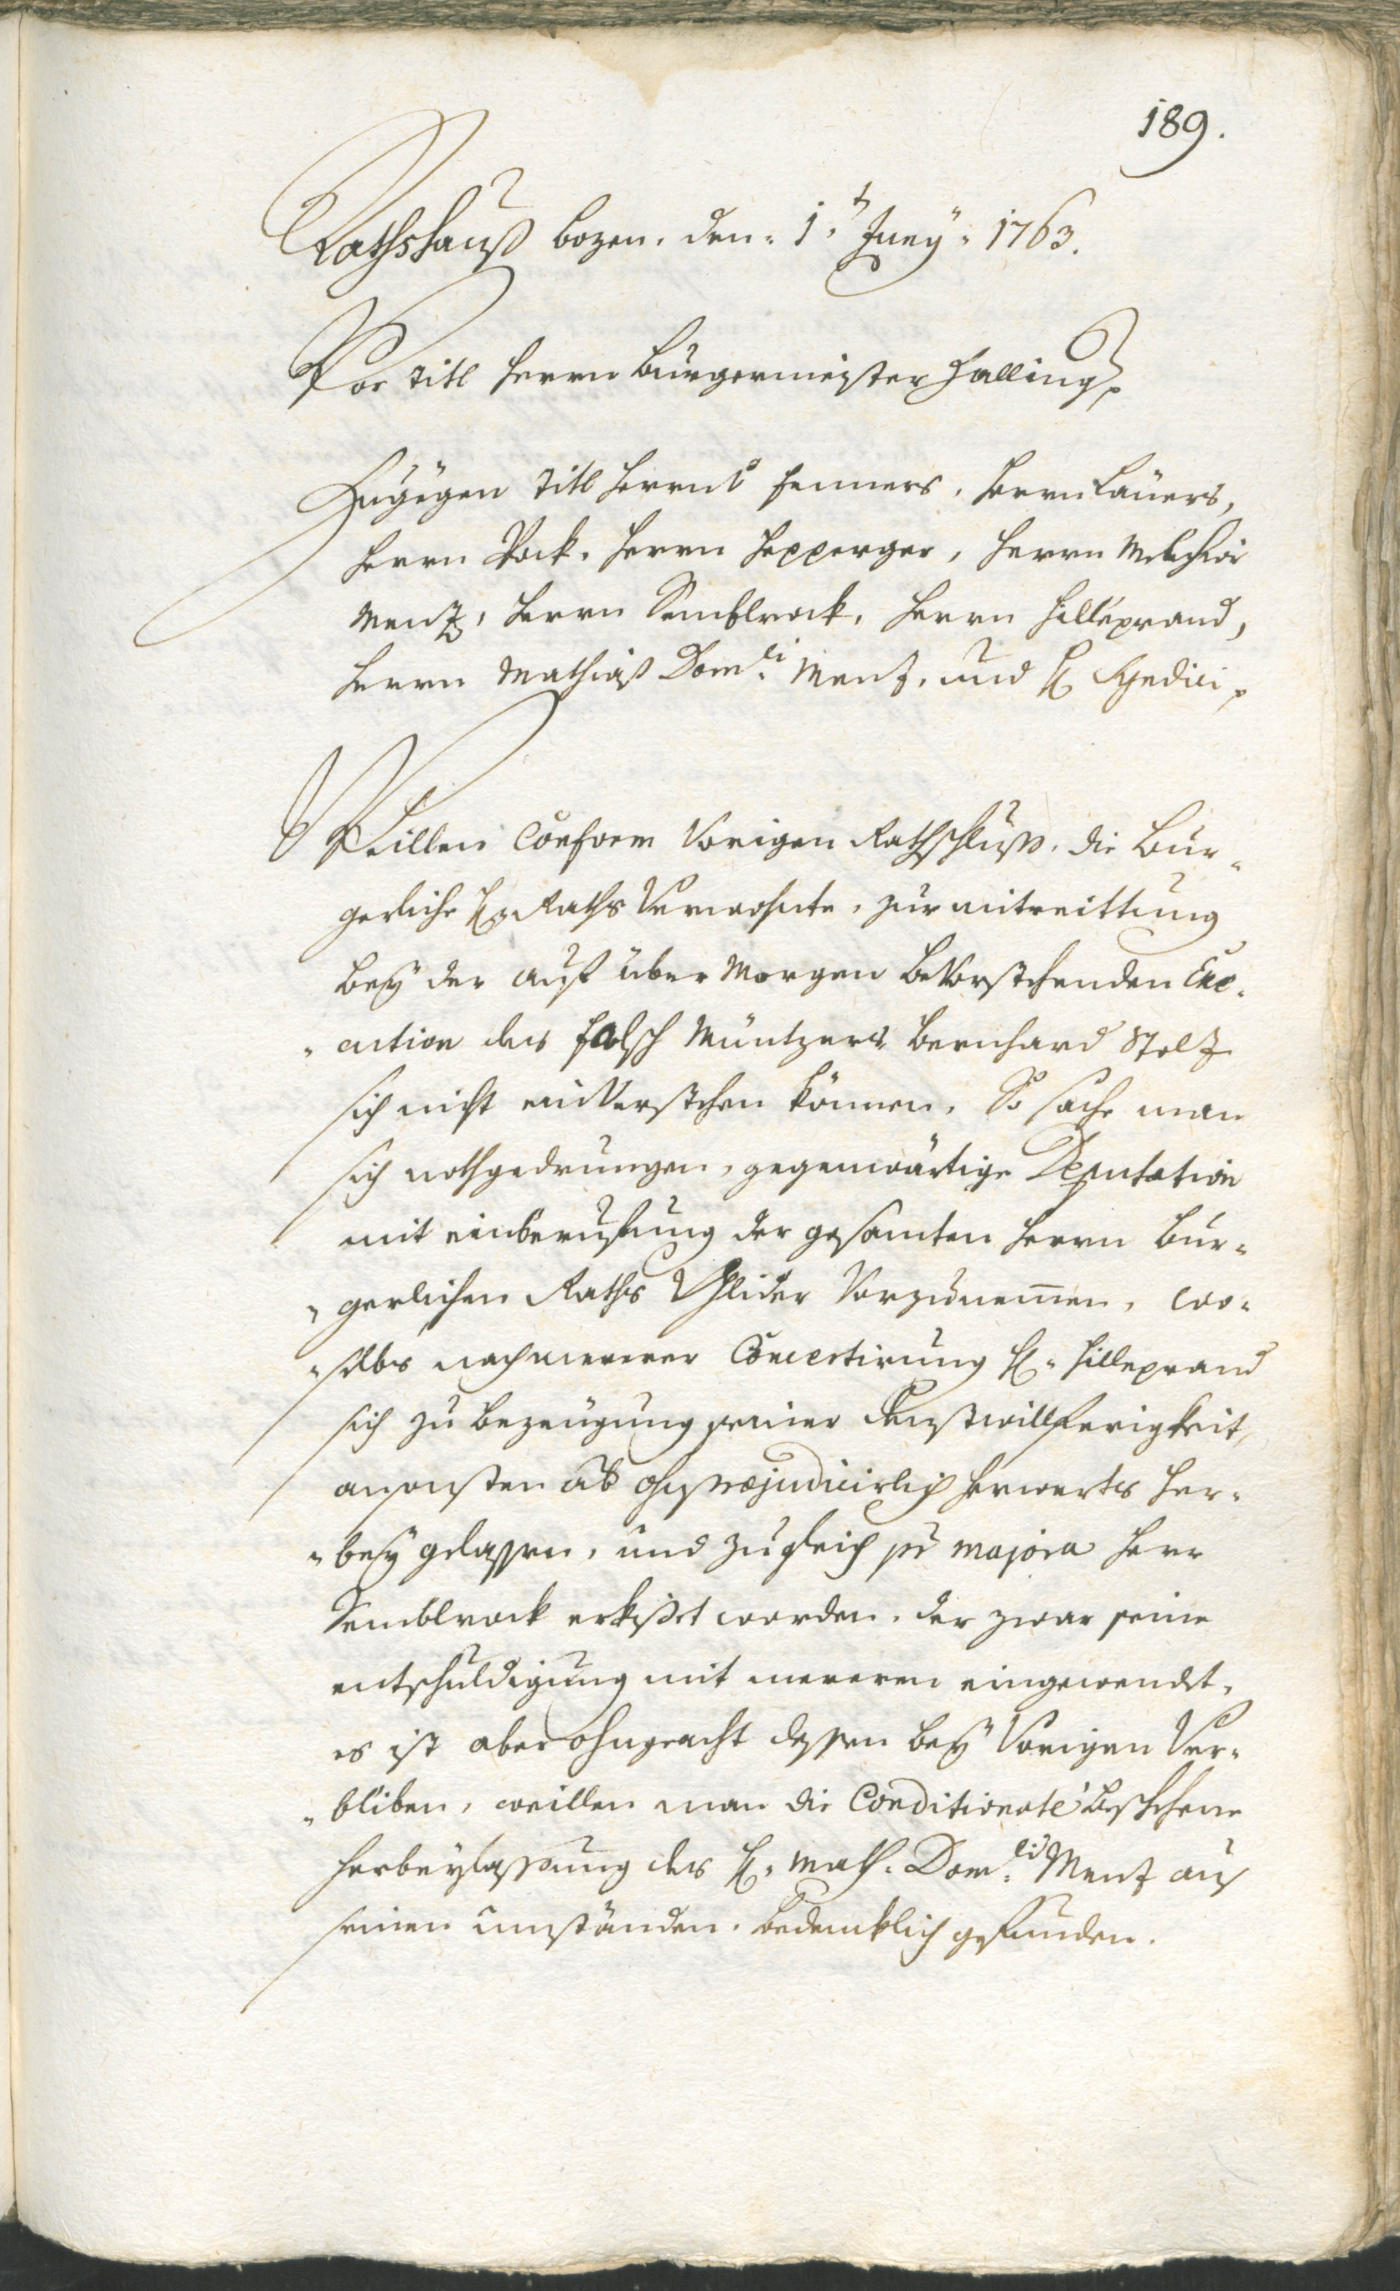 189.
Rathshauß bozen, den 1.t Juny 1763.
Vor Titl herrn Burgermeister Halling
Zugegen Titl herrn v fenners, herrn Lauers,
herrn Pock, herrn Hepperger, herrn Melchior
Menz, herrn Semblrock, herrn Hilleprand,
herrn Mathias Dom:ci Menz, und H Syndici
Weillen Conform Vorigen Rathschluß, die Bur-
gerliche H Raths Verwohnte, zur mitreittung
bey der auf über Morgen bevorstehenden Exe-
-cution des falsch Müntzers Bernhard Stolz
sich nicht einverstehen können, So hache man
sich nothgedrungen, gegenwärtige Deputation
mit einberufung der gesamten herrn Bur-
-gerlichen Raths Glider Vorzunemen, wo-
-selbs nach mererer Concertirung H: Hilleprand
sich zu bezeugung seiner dienstwillferigkeit,
ansonsten ab ohnpræjudicirlich herwerts her-
-bey gelassen, und zugleich per majora herr
Semblrock erkißet worden, der zwar seine
entschuldigung mit mererem eingewendt,
es ist aber ohngeacht dessen bey Vorigen Ver-
-bliben, weillen man die Conditionate beschehene
herbeylassung des H: Math: Dom:ci Menz aus
seinen umständen bedencklich gefunden.